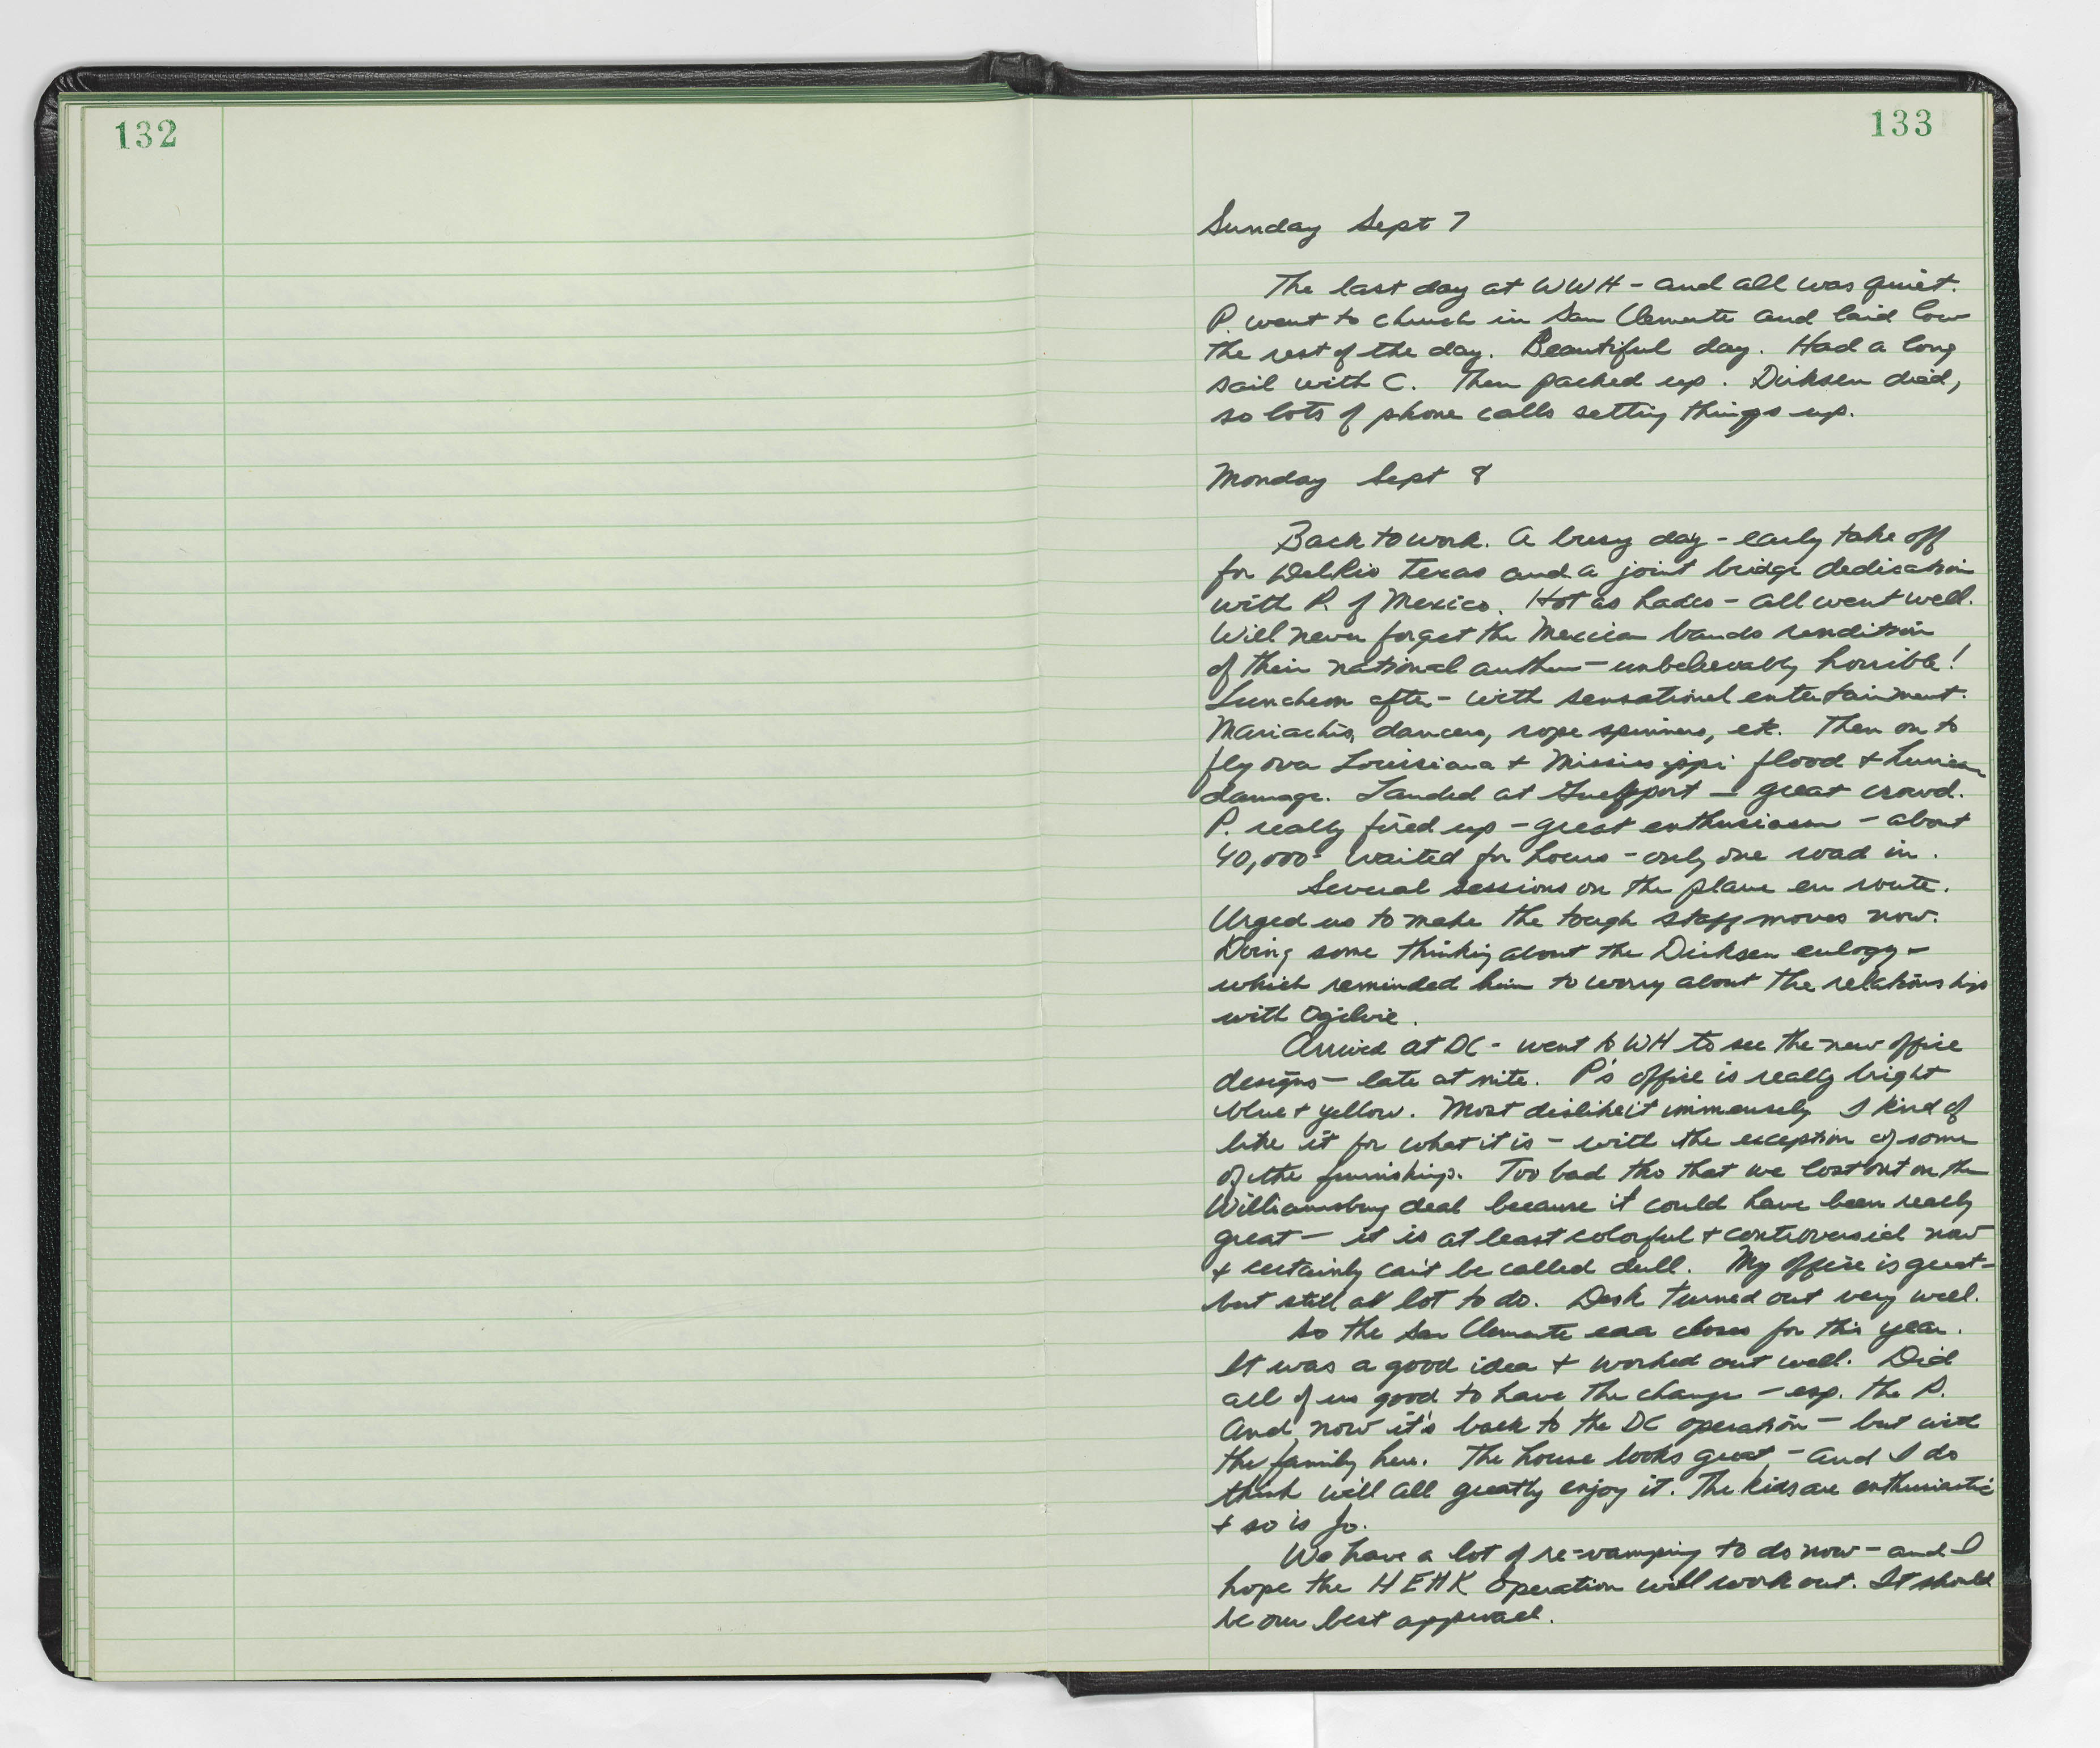 132
133
Sunday Sept 7
The last day at WWH - and all was quiet.
P. went to church in San Clemente and laid low
the rest of the day. Beautiful day. Had a long
sail with C. Then packed up. Dirksen died,
so lots of phone calls setting things up.
Monday Sept 8
Back to work. A busy day - early take off
for Del Rio Texas and a joint bridge dedication
with P. of Mexico. Hot as hades - all went well.
Will never forget the Mexican bands rendition
of their national anthem - unbelievably horrible!
Luncheon after - with sensational entertainment.
Mariachis, dancers, rope spinners, etc. Then on to
fly over Louisiana + Mississippi flood + hurricane
damage. Landed at Gulfport - great crowd.
P. really fired up - great enthusiasm - about
40,000 - waited for hours - only one road in.
Several sessions on the plane en route.
Urged us to make the tough staff moves now.
Doing some thinking about the Dirksen eulogy -
which reminded him to worry about the relationships
with Ogilvie.
Arrived at DC - went to WH to see the new office
designs - late at nite. P's office is really bright
blue + yellow. Most dislike it immensely I kind of
like it for what it is - with the exception of some
of the furnishings. Too bad tho that we lost out on the
Williamsburg deal because it could have been really
great - it is at least colorful + controversial now
+ certainly can't be called dull. My office is great -
but still a lot to do. Desk turned out very well.
So the San Clemente era closes for this year.
It was a good idea + worked out well. Did
all of us good to have the change - esp. the P.
And now it's back to the DC operation - but with
the family here. The house looks great - and I do
think we'll all greatly enjoy it. The kids are enthusiastic
+ so is Jo.
We have a lot of re-vamping to do now - and I
hope the HEHK operation will work out. It should
be our best approach.